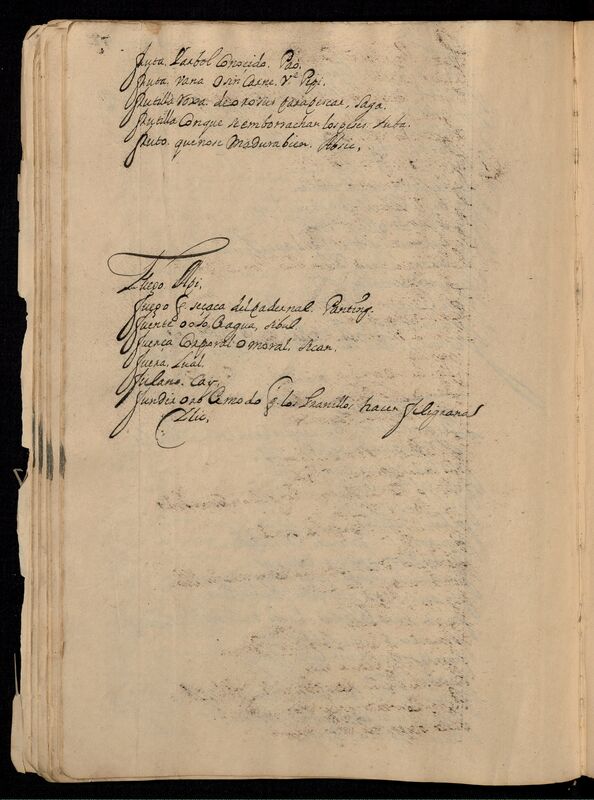 fruta. l'arbol conocido. Pao.
fruta. vana o sin carne. vᵉ Pipi.
frutilla roxa. para pescar. saga.
frutilla con que se emborrachan los peses. tuba.
fruto. que no se madura bien.
fuego. Api.
fuego q̃ se saca del padernal. Panting.
fuente o ojo de agua, sibul
fuerça corporal o moral.
fuera, lual.
fulano. cay.
fundir oro a modo q̃ los hacer filigranas